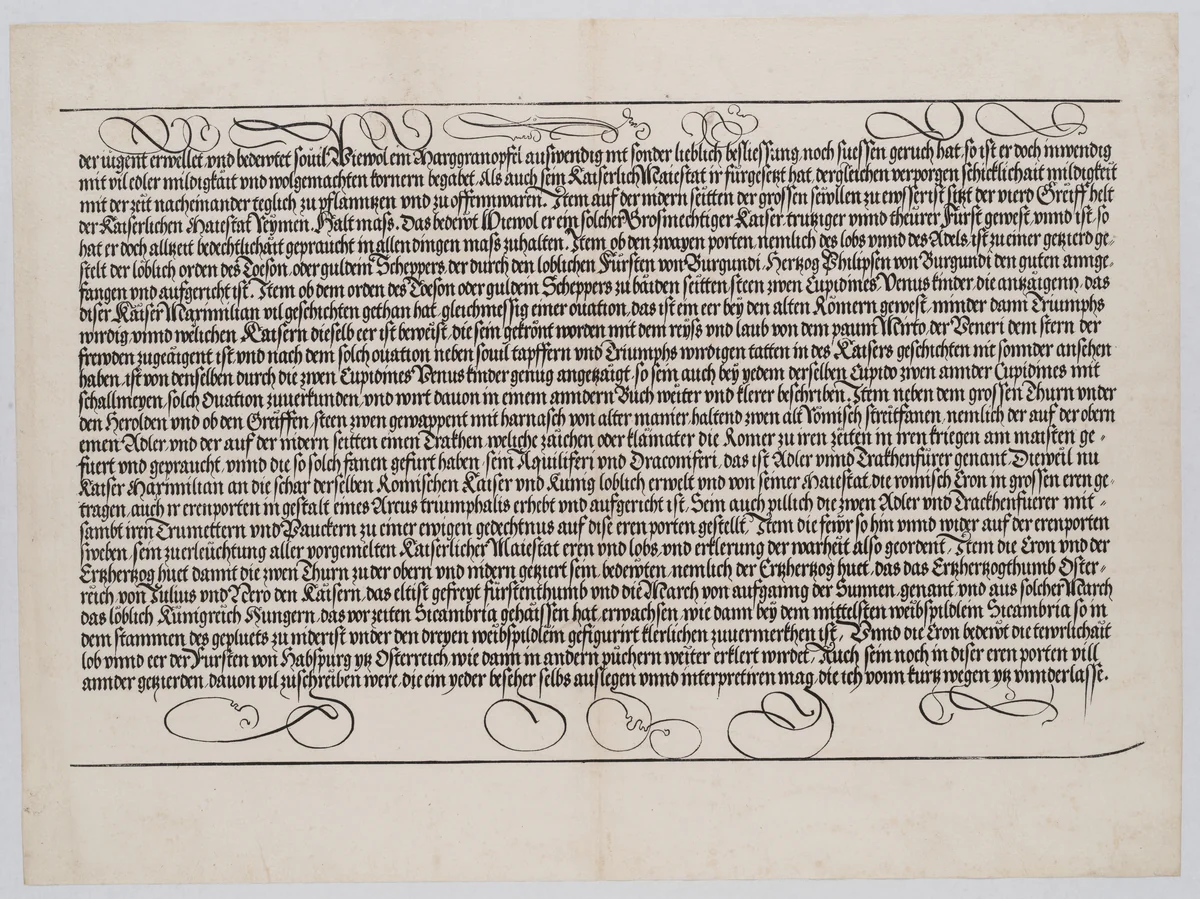 der iugent erwellet, vnd bedewtet souil, Wiewol ein Marggranopfel auswendig nit sonder lieblich besliessung, noch suessen geruch hat, so ist er doch inwendig
mit vil edler mildigkait vnd wolgemachten kornern begabet, Als auch sein Kaiserlich Maiestat ir fürgesetzt hat, dergleichen verporgen schicklichait mildigkeit
mit der zeit nacheinander teglich zu pflanntzen vnd zu offennwaren. Item auf der nidern seitten der grossen sewllen zu ewsserist sitzt der vierd Greiff helt
der Kaiserlichen Maiestat Reymen, Halt mass, Das bedewt Wiewol er ein solcher Grosmechtiger Kaiser, trutziger vnnd theurer Fürst gewest, vnnd ist, so
hat er doch alltzeit bedechtlichait gepraucht in allen dingen mass zuhalten. Item ob den zwayen porten, nemlich des lobs vnnd des Adels, ist zu einer getzierd ge-
stelt der löblich orden des Toeson, oder guldem Scheppers, der durch den loblichen Fürsten von Burgundi, Hertzog Philipsen von Burgundi den guten annge-
fangen vnd aufgericht ist. Item ob dem orden des Toeson oder guldem Scheppers zu baiden seitten steen zwen Cupidines Venus kinder, die antzaigenn, das
diser Kaiser Maximilian vil geschichten gethan hat, gleichmessig einer ouation, das ist ein eer bey den alten Römern gewest, minder dann Triumphs
wirdig, vnnd welichen Kaisern dieselb eer ist beweist, die sein gekrönt worden mit dem reyss vnd laub von dem paum Mirto, der Veneri dem stern der
frewden zugeaigent ist, vnd nach dem solch ouation neben souil tapffern vnd Triumphs wirdigen tatten in des Kaisers geschichten nit sonnder ansehen
haben, ist von denselben durch die zwen Cupidines Venus kinder genug angetzaigt, so sein auch bey yedem derselben Cupido zwen annder Cupidines mit
schallmeyen, solch Ouation zuuerkunden, vnd wirt dauon in einem anndern Buch weiter vnd klerer beschriben. Item neben dem grossen Thurn vnder
den Herolden vnd ob den Greiffen, steen zwen gewappent mit harnasch von alter manier, haltend zwen alt Römisch streitfanen, nemlich der auf der obern
einen Adler, vnd der auf der nidern seitten einen Trakhen, weliche zaichen oder klainater die Romer zu iren zeiten in iren kriegen am maisten ge-
fuert vnd gepraucht, vnnd die so solch fanen gefurt haben, sein Aquiliferi vnd Draconiferi, das ist Adler vnnd Trakhenfürer genant, Dieweil nu
Kaiser Maximilian an die schar derselben Romischen Kaiser vnd Kunig loblich erwelt vnd von seiner Maiestat, die romisch Cron in grossen eren ge-
tragen, auch ir erenporten in gestalt eines Arcus triumphalis erhebt vnd aufgericht ist, Sein auch pillich die zwen Adler vnd Trackhenfuerer mit-
sambt iren Trumettern vnd Pauckern zu einer ewigen gedechtnus auf dise erenporten gestellt, Item die fewr so hin vnnd wider auf der erenporten
sweben, sein zuerleuchtung aller vorgemelten Kaiserlicher Maiestat eren vnd lobs, vnd erklerung der warheit also geordent, Item die Cron vnd der
Ertzhertzog huet damit die zwen Thurn zu der obern vnd nidern getziert sein, bedewten, nemlich der Ertzhertzog huet, das das Ertzhertzogthumb Oster-
reich, von Julius vnd Nero den Kaisern, das eltist gefreyt fürstenthumb vnd die March von aufganng der Sunnen, genant, vnd aus solcher March
das löblich Künigreich Hungern, das vor zeiten Sicambria gehaissen hat, erwachsen, wie dann bey dem mittelsten weibspildlein Sicambria so in
dem stammen des gepluets zu niderist vnder den dreyen weibspildlein gefigurirt klerlichen zuuermerkhen ist, Vnnd die Cron bedewt die tewrlichait
lob vnnd eer der Fursten von Habspurg ytz Osterreich, wie dann in andern püchern weiter erklert wirdet, Auch sein noch in diser erenporten vill
annder getzierden, dauon vil zuschreiben were, die ein yeder beseher selbs auslegen vnnd interpretiren mag, die ich vonn kurtz wegen ytz vnnderlasse.